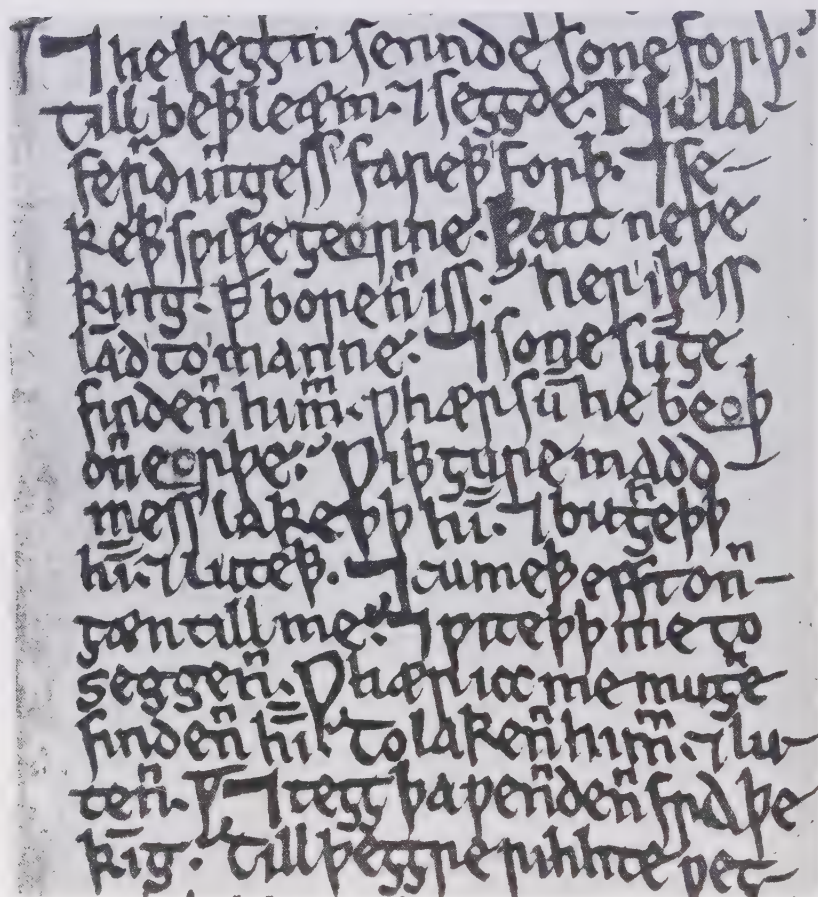 ⁊ he þeȝȝm sennde sone forþ.
till beþ̄leæm. ⁊ seȝȝde. Nu la-
ferr̄dinḡess fareþ̄ forþ. ⁊ se-
keþ̄ swiþe ȝeorne. Þatt newe
king. þ̄ boreñ iss. her i þiss
land to manne. ⁊ sone sū ȝe
findeñ him̄. whær sū he beoþ
oñ eorþe. Wiþ̄ ȝure madd-
mess lakeþþ hī. ⁊ buȝheþþ
hī. ⁊ luteþ̄. ⁊ cumeþ̄ efft oñ-
ȝæn till me. ⁊ witeþþ me to
seggeñ. Whær icc me muȝhe
findeñ hī. To lakeñ him̄. ⁊ lu-
teñ. ⁊ teȝȝ þa wenñdeñ fra þe
kīg. till þeȝȝre rihhte weȝ-